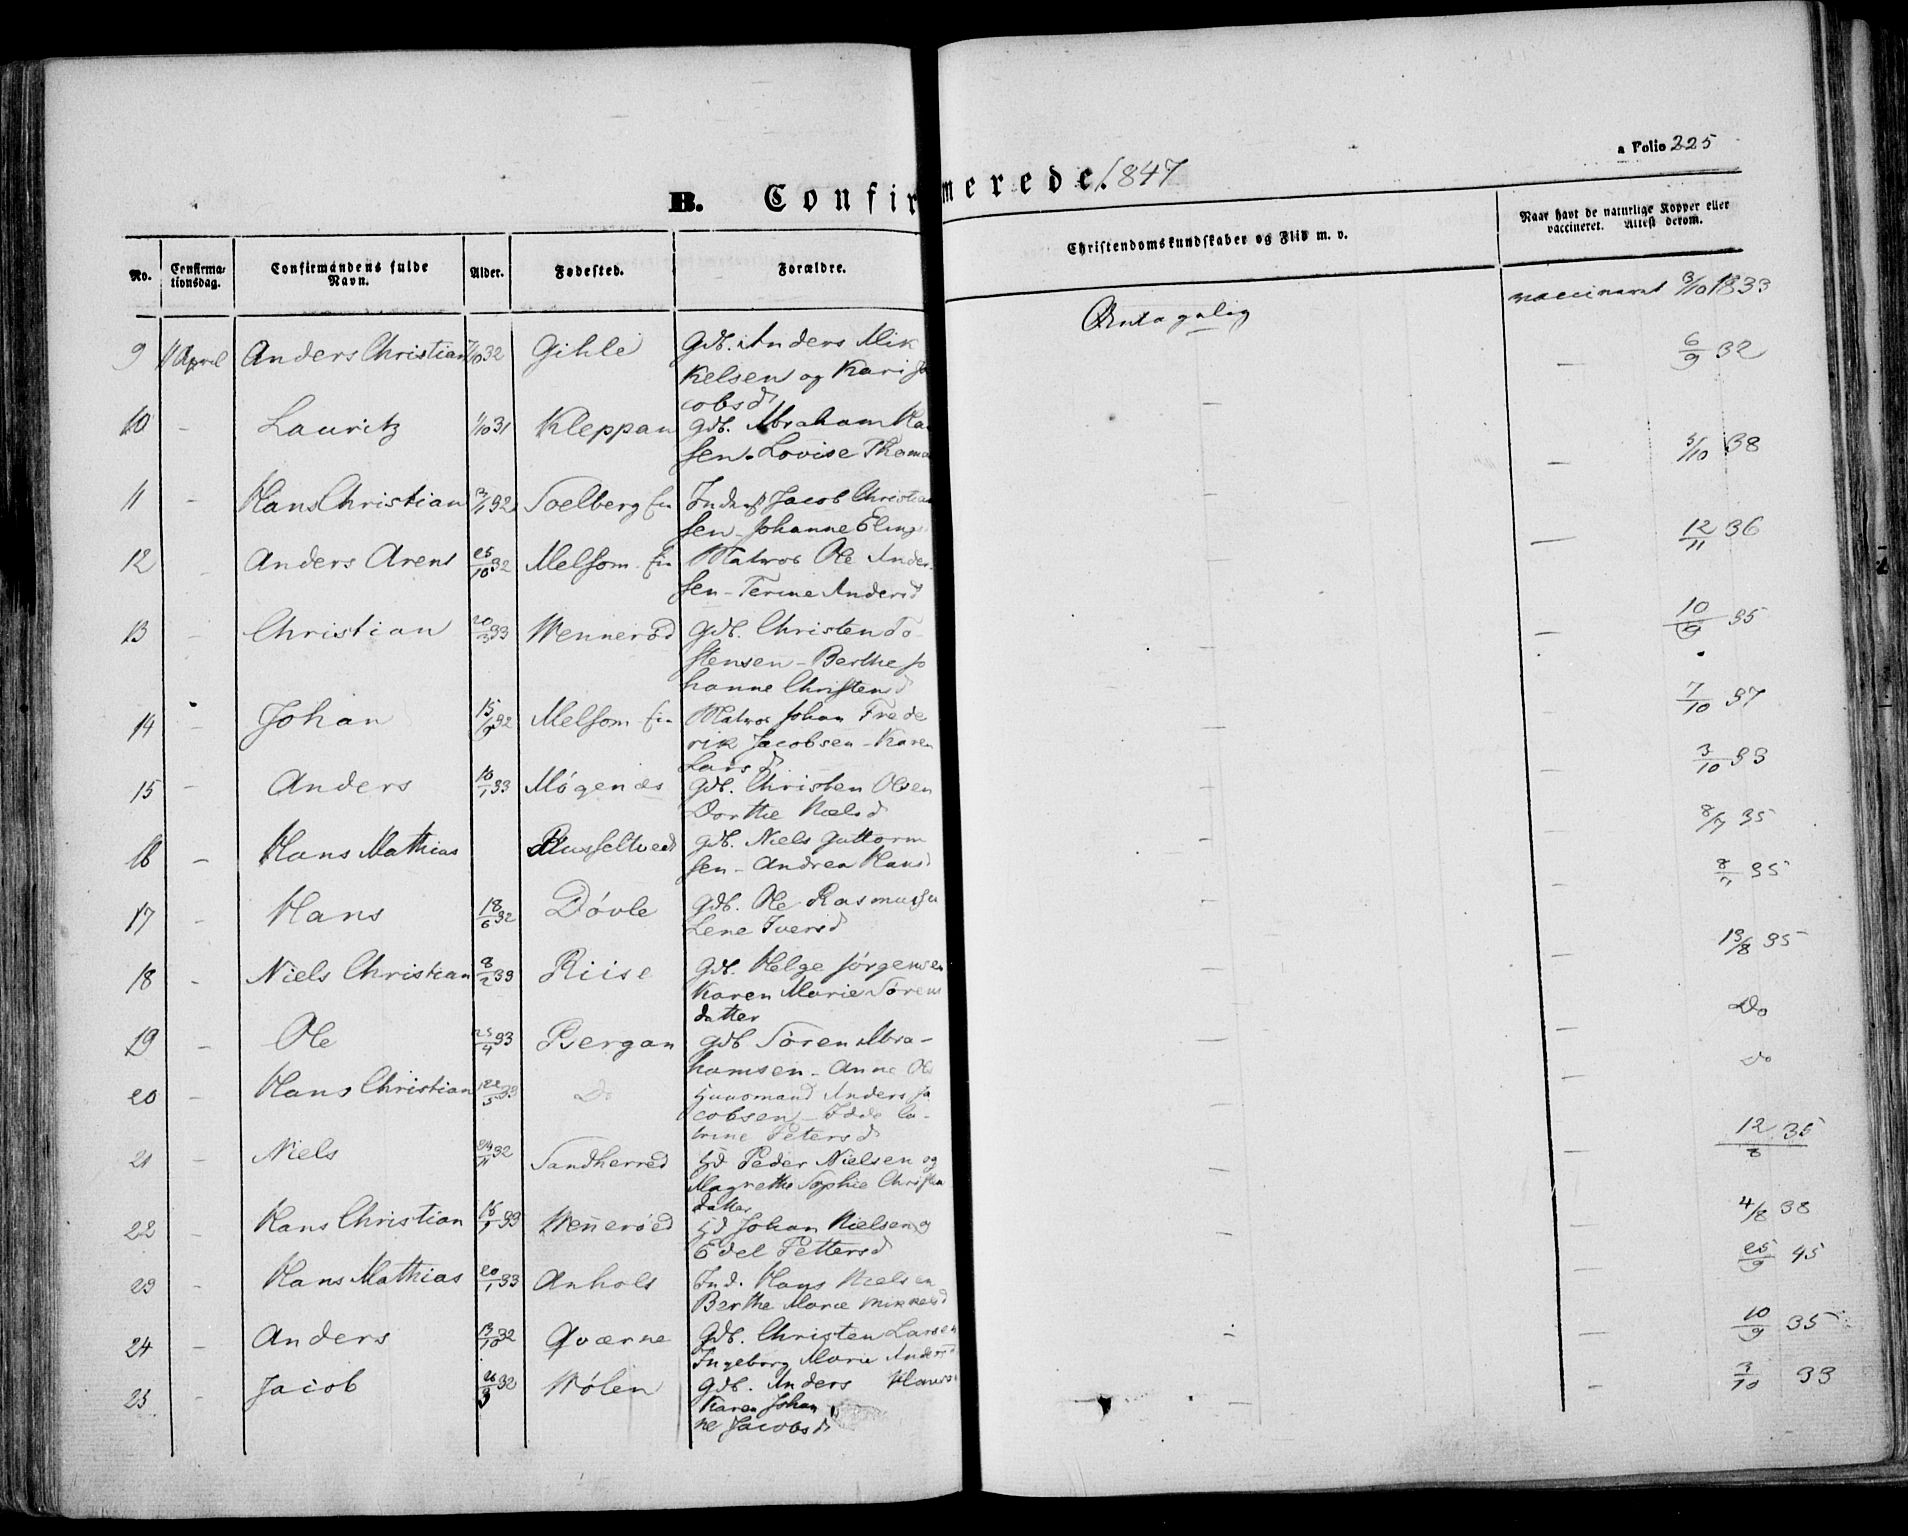 a Folio 225
B. Confirmerede. 1847
No.
Confirma-
tionsdag.
Confirmandens fulde
Navn.
Alder.
Fødested.
Forældre.
Christendomskundskaber og Flid m. v.
Naar havt de naturlige Kopper eller
vaccineret. Attest derom.
9 11 April Anders Christian 7/10 32 Gihle Gdb. Anders Mik
kelsen og Kari Ja
cobsd Antagelig vaccineret 3/10 1833
10 - Lauritz 1/10 31 Kleppan Gdb. Abraham Han
sen - Lovise Thoma - - 6/9 32
11 - Hans Christian 3/1 32 Soelberg Ein Inderst Jacob Christian
sen - Johanne Elings - - 5/10 38
12 - Anders Arent 25/10 32 Melsom Ein Matros Ole Ander
sen - Terine Andersd - - 12/11 36
13 - Christian 20/3 33 Wennerød Gdb. Christen To
stensen - Berthe Jo
hanne Christensd - - 10/9 35
14 - Johan 15/9 32 Melsom Ein Matros Johan Frede
rik Jacobsen - Karen
Larsd - - 7/10 37
15 - Anders 10/1 33 Møgenæs Gdb. Christen Olsen
Dorthe Nielsd - - 3/10 33
16 - Hans Mathias Russeltvedt Gdb. Niels Guttorm
sen - Andrea Hansd - - 8/7 35
17 - Hans 18/6 32 Døvle Gdb. Ole Rasmussen
Lene Iversd - - 8/7 35
18 - Niels Christian 8/2 33 Riise Gdb. Helge Jørgensen
Karen Marie Sørens
datter - - 13/8 35
19 - Ole 25/4 33 Bergan Gdb Søren Abra-
hamsen - Anne Ols - - Do
20 - Hans Christian 22/5 33 Do Huusmand Anders Ja
cobsen - Idde Ca-
trine Petersd - - do
21 - Niels 24/11 32 Sandherred Hd Peder Nielsen og
Magrethe Sophie Christen
datter - - 12/8 35
22 - Hans Christian 15/1 33 Wennerøed Hd Johan Nielsen og
Edel Pettersd - - 4/8 38
23 - Hans Mathias 20/1 33 Anholt Ind. Hans Nielsen
Berthe Marie Mikkelsd - - 25/9 45
24 - Anders 13/10 32 Qværne Gdb. Christen Larsen
Ingeborg Marie Andersd - - 10/9 35
25 - Jacob 26/9 32 Wølen Gdb. Anders Hans
Karen Johan
ne Jacobsd - - 3/10 33